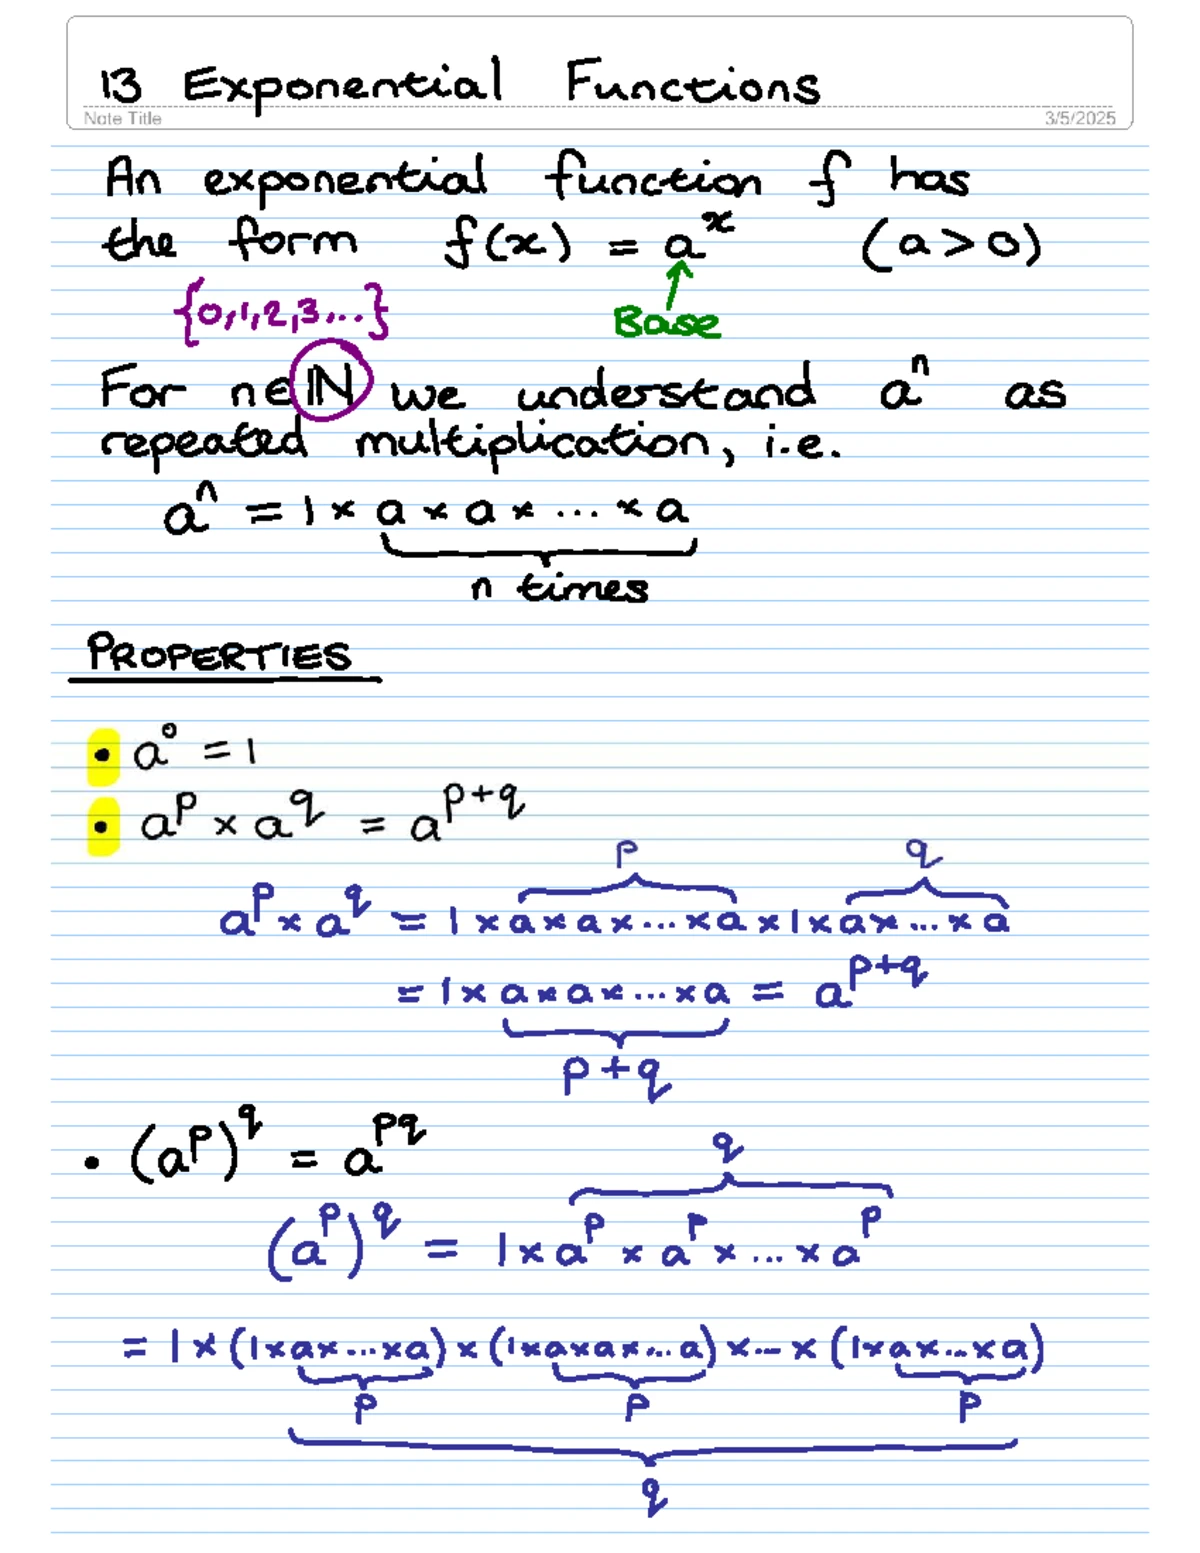 13 Exponential Functions
Note Title 3/5/2025
An exponential function f has
the form f(x) = a^x (a>0)
{0,1,2,3,...} Base
For n∈ℕ we understand a^n as
repeated multiplication, i.e.
a^n = 1 × a × a × ... × a
n times
PROPERTIES
• a^0 = 1
• a^p × a^q = a^{p+q}
p q
a^p × a^q = 1 × a × a × ... × a × 1 × a × ... × a
= 1 × a × a × ... × a = a^{p+q}
p+q
• (a^p)^q = a^{pq}
q
(a^p)^q = 1 × a^p × a^p × ... × a^p
= 1 × (1 × a × ... × a) × (1 × a × a × ... a) × ... × (1 × a × ... × a)
p p p
q